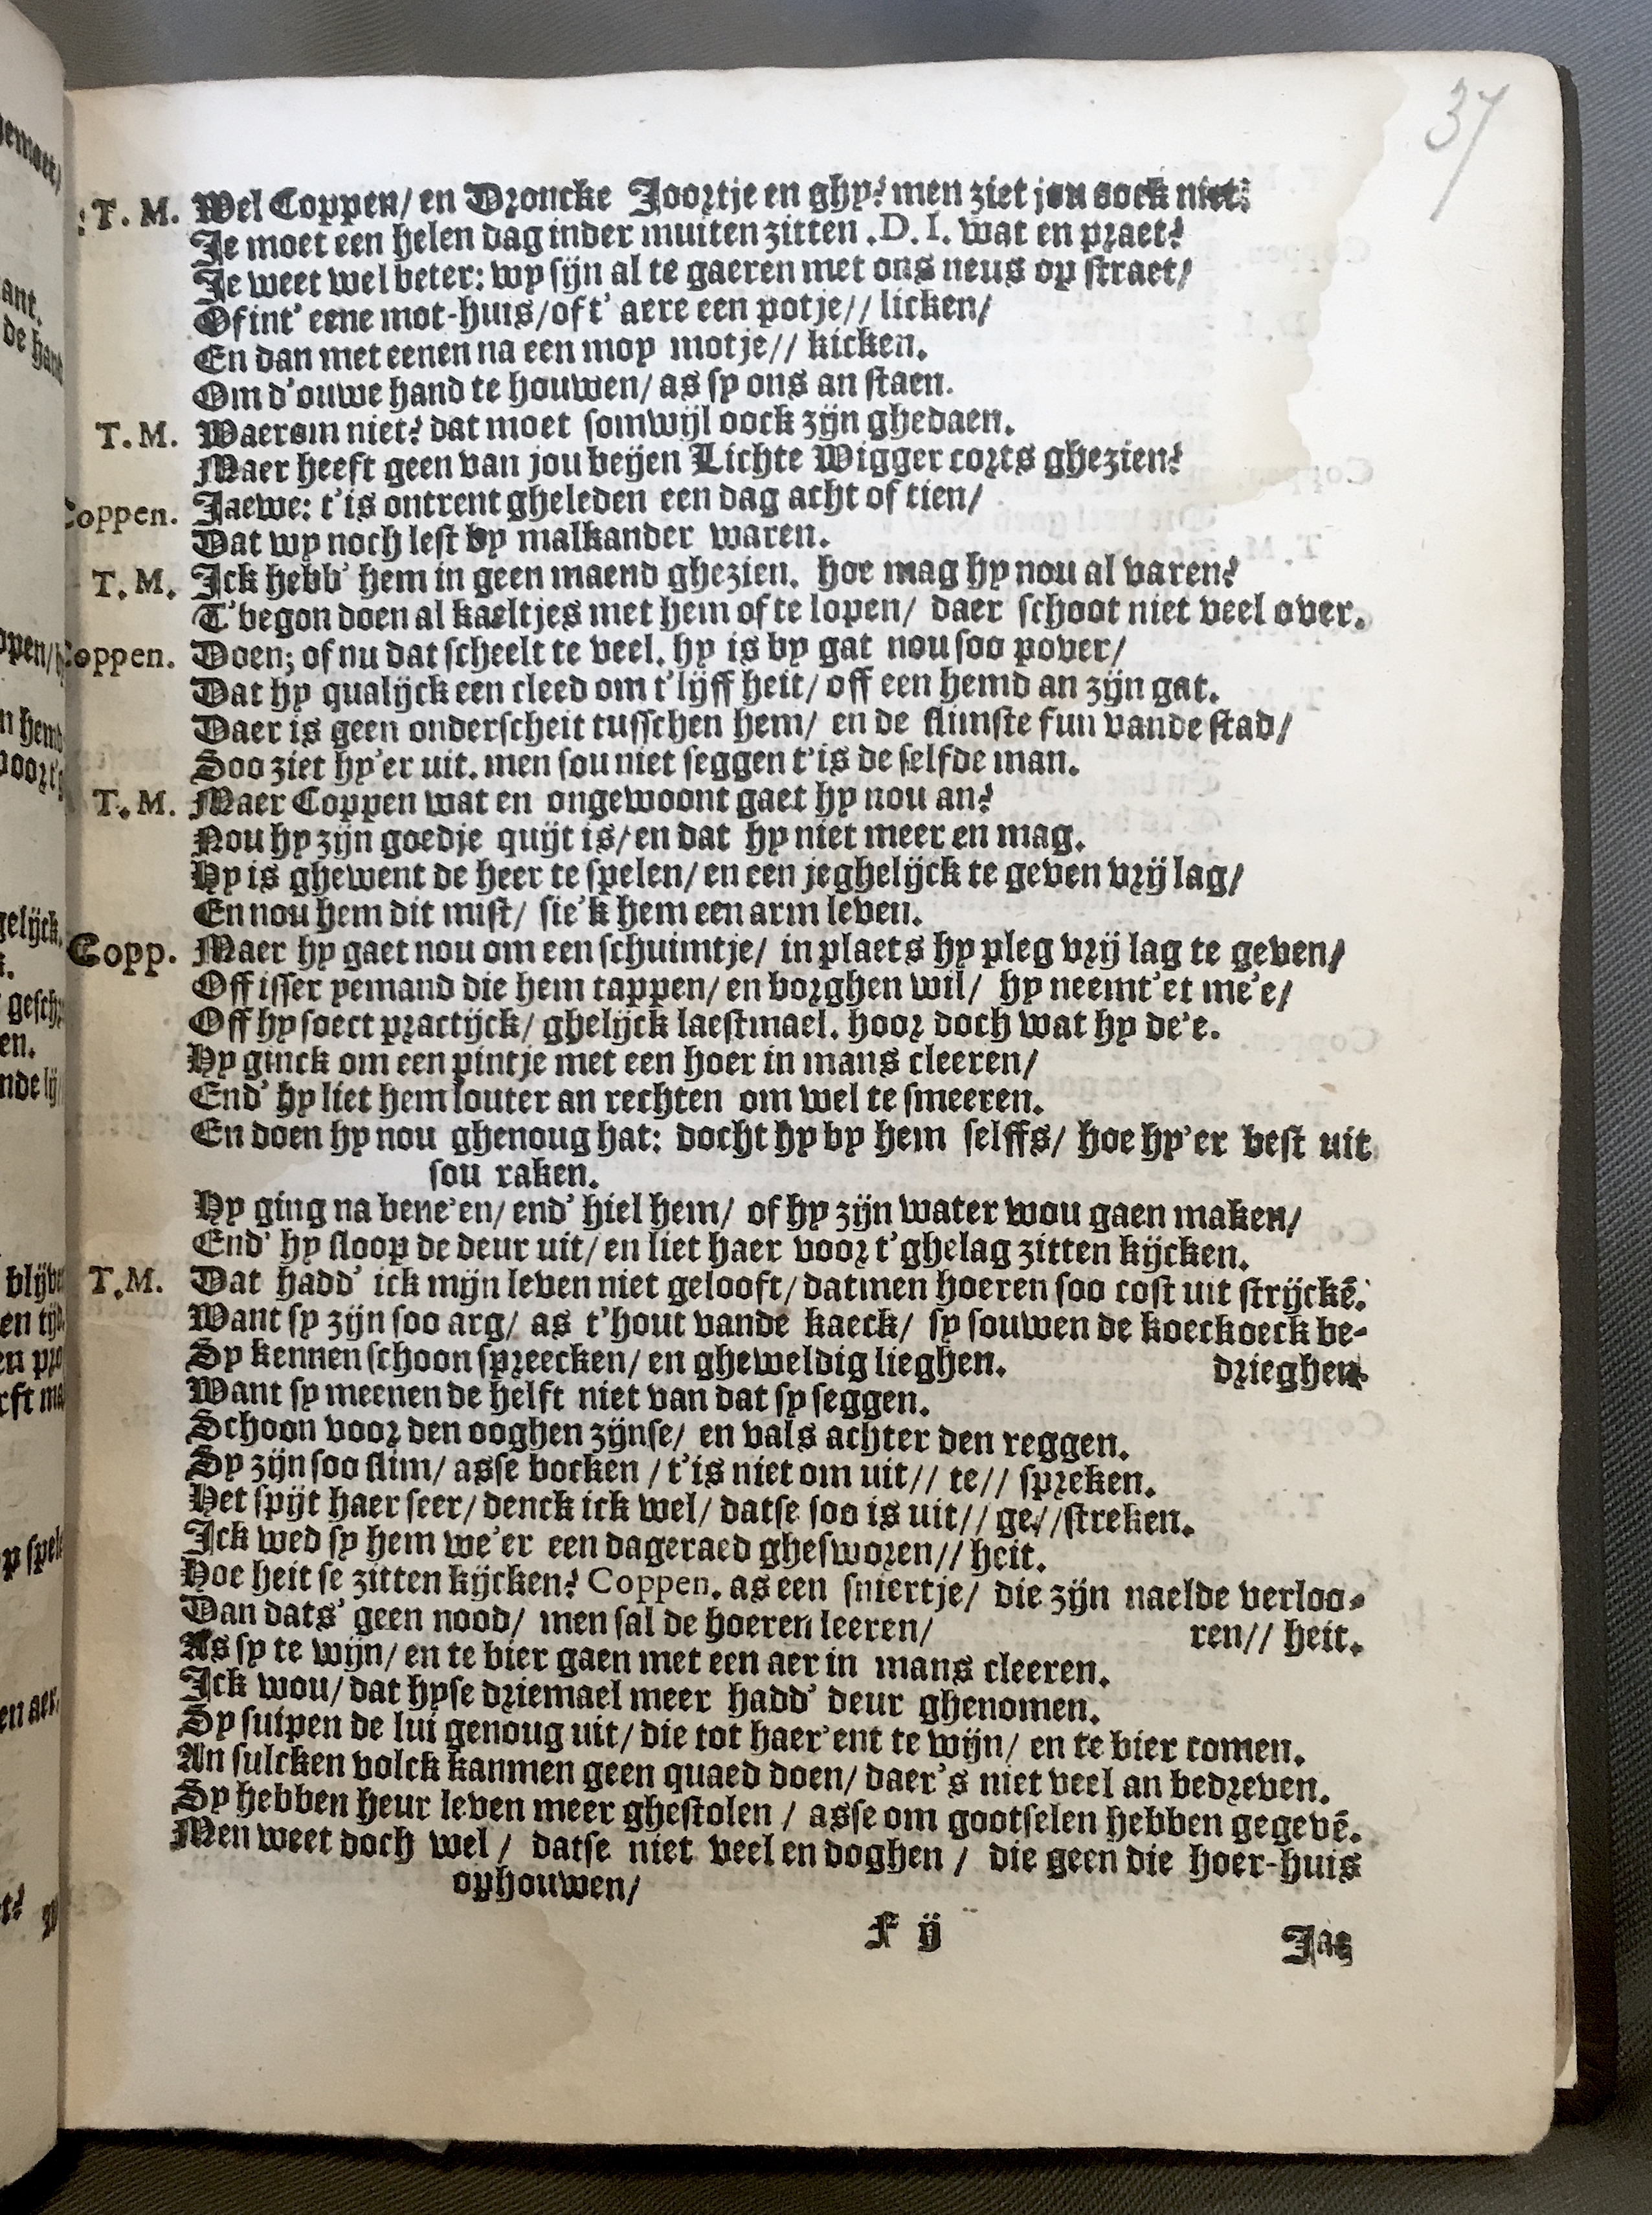 37
T. M. Wel Coppen/ en Droncke Joortje en ghy? men ziet jou oock niet?
Je moet een helen dag inder muiten zitten .D. I. wat en praet?
Je weet wel beter: wy sijn al te gaeren met ons neus op straet/
Of int' eene mot-huis/of t' aere een potje// licken/
En dan met eenen na een moy motje// kicken.
Om d'ouwe hand te houwen/ as sy ons an staen.
T. M. Waerom niet? dat moet somwijl oock zijn ghedaen.
Maer heeft geen van jou beijen Lichte Wigger corts ghezien?
Coppen. Jaewe: t'is ontrent gheleden een dag acht of tien/
Dat wy noch lest by malkander waren.
T. M. Ick hebb' hem in geen maend ghezien. hoe mag hy nou al varen?
T'begon doen al kaeltjes met hem of te lopen/ daer schoot niet veel over.
Coppen. Doen; of nu dat scheelt te veel. hy is by gat nou soo pover/
Dat hy qualijck een cleed om t'lijff heit/ off een hemd an zijn gat.
Daer is geen onderscheit tusschen hem/ en de slimste fun vande stad/
Soo ziet hy'er uit. men sou niet seggen t'is de selfde man.
T. M. Maer Coppen wat en ongewoont gaet hy nou an?
Nou hy zijn goedje quijt is/ en dat hy niet meer en mag.
Hy is ghewent de heer te spelen/ en een jeghelijck te geven vrij lag/
En nou hem dit mist/ sie'k hem een arm leven.
Copp. Maer hy gaet nou om een schuimtje/ in plaets hy pleg vrij lag te geven/
Off isser yemand die hem tappen/ en borghen wil/ hy neemt'et me'e/
Off hy soect practijck/ ghelijck laestmael. hoor doch wat hy de'e.
Hy ginck om een pintje met een hoer in mans cleeren/
End' hy liet hem louter an rechten om wel te smeeren.
En doen hy nou ghenoug hat: docht hy by hem selffs/ hoe hy'er best uit
sou raken.
Hy ging na bene'en/ end' hiel hem/ of hy zijn water wou gaen maken/
End' hy sloop de deur uit/ en liet haer voor t'ghelag zitten kijcken.
T. M. Dat hadd' ick mijn leven niet gelooft/ datmen hoeren soo cost uit strijckē.
Want sy zijn soo arg/ as t'hout vande kaeck/ sy souwen de koeckoeck be-
Sy kennen schoon spreecken/ en gheweldig lieghen. drieghen.
Want sy meenen de helft niet van dat sy seggen.
Schoon voor den ooghen zijnse/ en vals achter den reggen.
Sy zijn soo slim/ asse bocken / t'is niet om uit// te// spreken.
Het spijt haer seer/ denck ick wel/ datse soo is uit// ge//streken.
Ick wed sy hem we'er een dageraed ghesworen// heit.
Hoe heit se zitten kijcken? Coppen. as een sniertje/ die zijn naelde verloo-
Dan dats' geen nood/ men sal de hoeren leeren/ ren// heit.
As sy te wijn/ en te bier gaen met een aer in mans cleeren.
Ick wou/ dat hyse driemael meer hadd' deur ghenomen.
Sy suipen de lui genoug uit/ die tot haer'ent te wijn/ en te bier comen.
An sulcken volck kanmen geen quaed doen/ daer's niet veel an bedreven.
Sy hebben heur leven meer ghestolen / asse om gootselen hebben gegevē.
Men weet doch wel / datse niet veel en doghen / die geen die hoer-huis
ophouwen/
F ij Jae